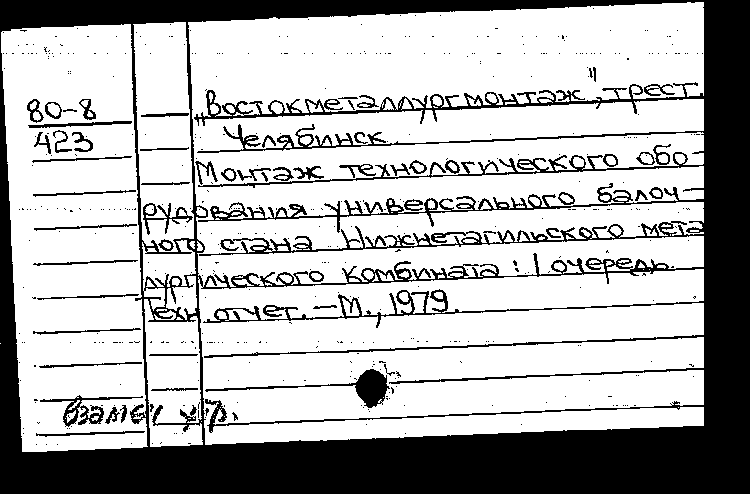 80-8
423
„Востокметаллургмонтаж", трест.
Челябинск.
Монтаж технологического обо-
рудования универсального балоч-
ного стана Нижнетагильского мета
лургического комбината: I очередь.
Техн. отчет. — М., 1979.
Взамен утр.